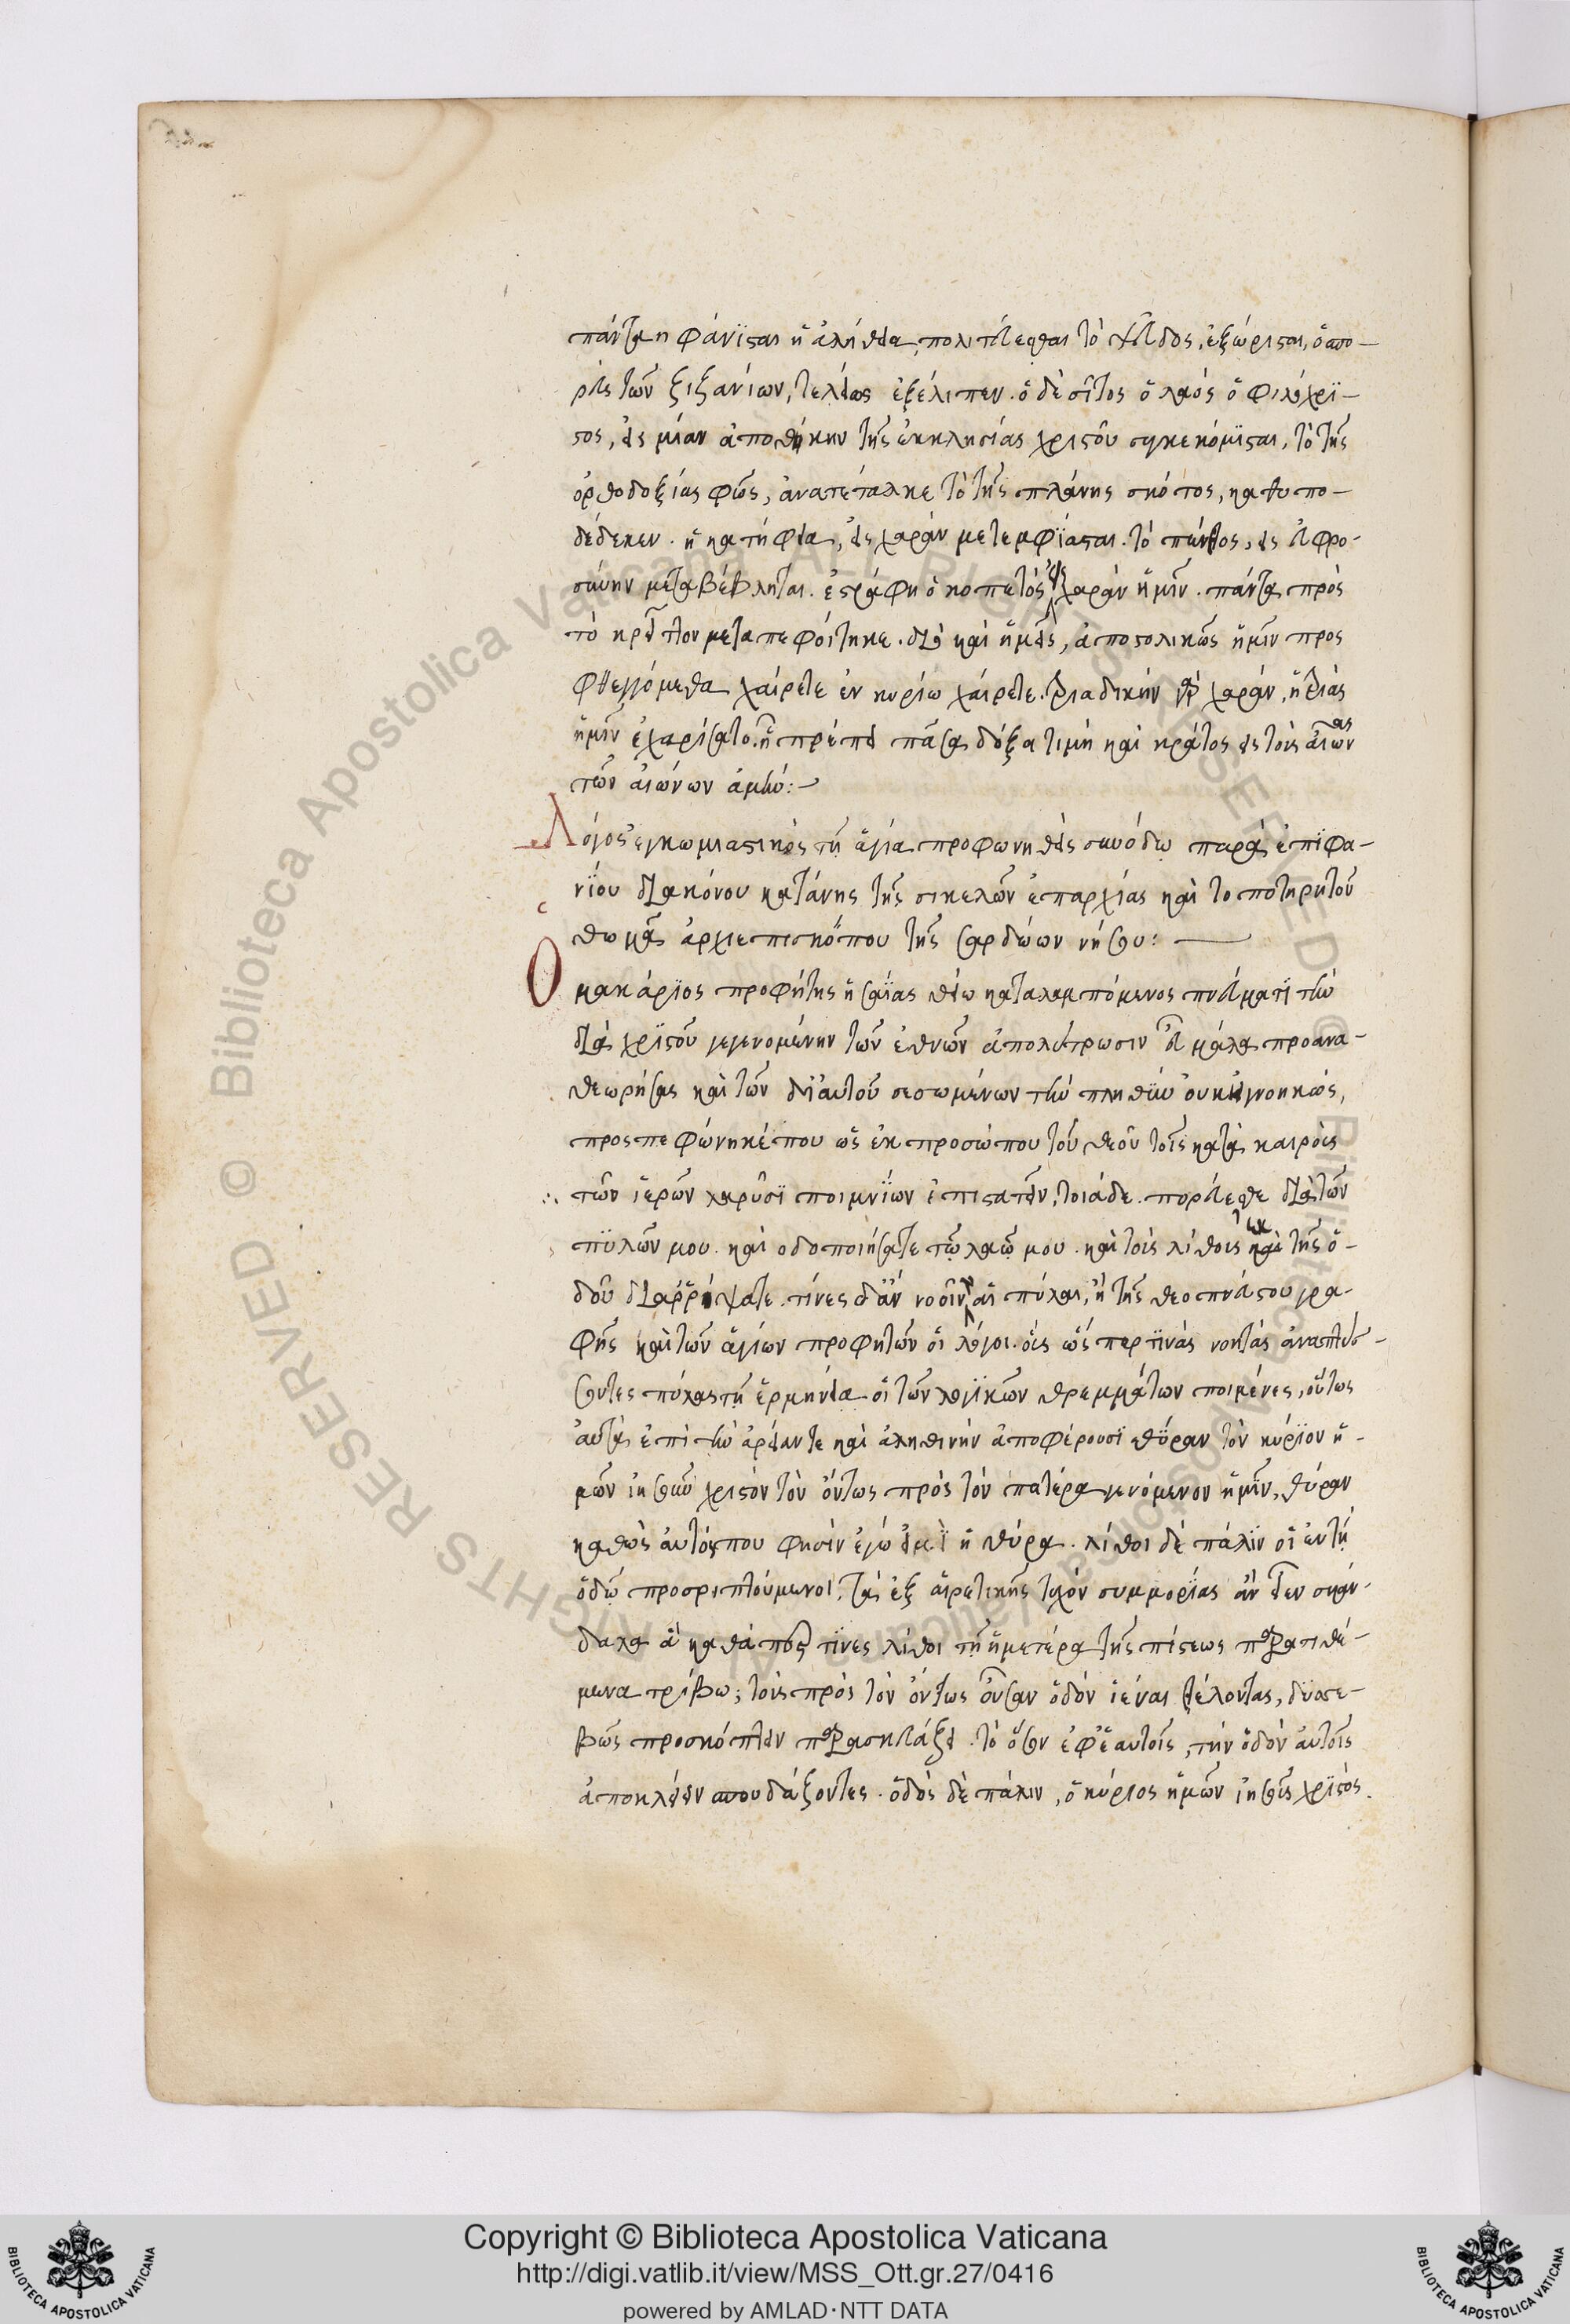 πάντα ηφάνϊσται ἡ ἀλήθεια πολιτεύεσθαι τὸ ψεῦδος, ἐξώρισται, ὁ σπο-
ρεὺς τῶν ζιζανίων, τελείως ἐξέλιπεν. ὁ δὲ σῖτος ὁ λαός ὁ φιλόχρϊ-
στος, εἰς μίαν ἀποθήκην τῆς ἐκκλησίας χριστοῦ συγκεκόμϊσται, τὸ τῆς
ὀρθοδοξίας φῶς, ἀνατέταλκε τὸ τῆς πλάνης σκότος, καθυπο-
δέδυκεν. ἡ κατήφεια, εἰς χαρὰν μετεμφΐασται. τὸ πένθος, εἰς εὐφρο-
σύνην μεταβέβληται. ἐστράφη ὁ κοπετὸς εἰς χαρὰν ἡμῖν. πάντα πρὸς
τὸ κρεῖττον μεταπεφοίτηκε. διὸ καὶ ἡμεῖς, ἀποστολικῶς ἡμῖν προς
φθεγγόμεθα χαίρετε ἐν κυρίω χαίρετε. τριαδικήν γὰρ χαράν, ἡ τριὰς
ἡμῖν ἐχαρίσατο. ἧ πρέπει πᾶσα δόξα τιμὴ καὶ κράτος εἰς τοὺς αἰῶνας
τῶν αἰώνων ἀμήν:-
Λόγος ἐγκωμιαστικὸς τῇ ἁγία προφωνηθεὶς συνόδω παρὰ ἐπϊφα-
νΐου διακόνου κατάνης τῆς σικελῶν ἐπαρχίας καὶ τοποτηρητοῦ
θωμᾶ ἀρχιεπισκόπου τῆς σαρδώων νήσου:
Ὁ μακάρϊος προφήτης ἡσαΐας θείω καταλαμπόμενος πνεύματι τὴν
διὰ χρϊστοῦ γεγενομένην τῶν ἐθνῶν ἀπολύτρωσιν εὖ μάλα προανα-
θεωρήσας καὶ τῶν δι αὐτοῦ σεσωμένων τὴν πληθὺν οὐκ ἠγνοηκώς,
προςπεφώνηκέ που ὡς ἐκ προσώπου τοῦ θεοῦ τοῖς κατὰ καιροὺς
τῶν ἱερῶν χαρῦσϊ ποιμνΐων ἐπιστατεῖν, τοιάδε. πορεύεσθε διὰ τῶν
πϋλῶν μου. καὶ οδοποιήσατε τῷ λαῷ μου. καὶ τοὺς λίθους ἐκ τῆς ὁ-
δοῦ διαρρίψατε. τίνες δ ἂν νοοῖν αἱ πύλαι, ἢ τῆς θεοπνεύστου γρα-
φῆς καὶ τῶν ἁγίων προφητῶν οἱ λόγοι. οὓς ὥσπερ τϊνὰς νοητὰς ἀναπτύσ-
σοντες πύλας τῇ ἑρμηνεία οἱ τῶν λογϊκῶν θρεμμάτων ποιμένες, οὕτως
αὐτὰ ἐπὶ τὴν ἀρείαν τε καὶ ἀληθινὴν ἀποφέρουσϊ θύραν τὸν κύρϊον ἡ-
μῶν ἰησοῦν χριστὸν τὸν ὄντως πρὸς τὸν πατέρα γενόμενον ἡμῖν, θύραν
καθὼς αὐτός που φησὶν ἐγώ εἰμϊ ἡ θύρα. λίθοι δὲ πάλϊν οἱ ἐν τῇ
ὁδῷ προσριπτούμενοι, τὰ ἐξ αἱρετικῆς τυχὸν συμμορίας ἂν εἶεν σκάν-
δαλα ἃ καθάπερ τϊνες λίθοι τῇ ἡμετέρα τῆς πίστεως παρατιθέ-
μενα τρίβω; τοὺς πρὸς τὸν ὄντως οὖσαν ὁδὸν ἰέναι θέλοντας, δυσσε-
βῶς προσκόπτειν παρασκευάζει. τὸ ὅσον ἐφ ἑαυτοῖς, τὴν ὁδὸν αὐτοῖς
ἀποκλείειν σπουδάζοντες. ὁδὸς δὲ πάλιν, ὁ κύριος ἡμῶν ἰησοῦς χρϊστός.
Copyright © Biblioteca Apostolica Vaticana
http://digi.vatlib.it/view/MSS_Ott.gr.27/0416
powered by AMLAD·NTT DATA
BIBLIOTECA APOSTOLICA VATICANA
BIBLIOTECA APOSTOLICA VATICANA